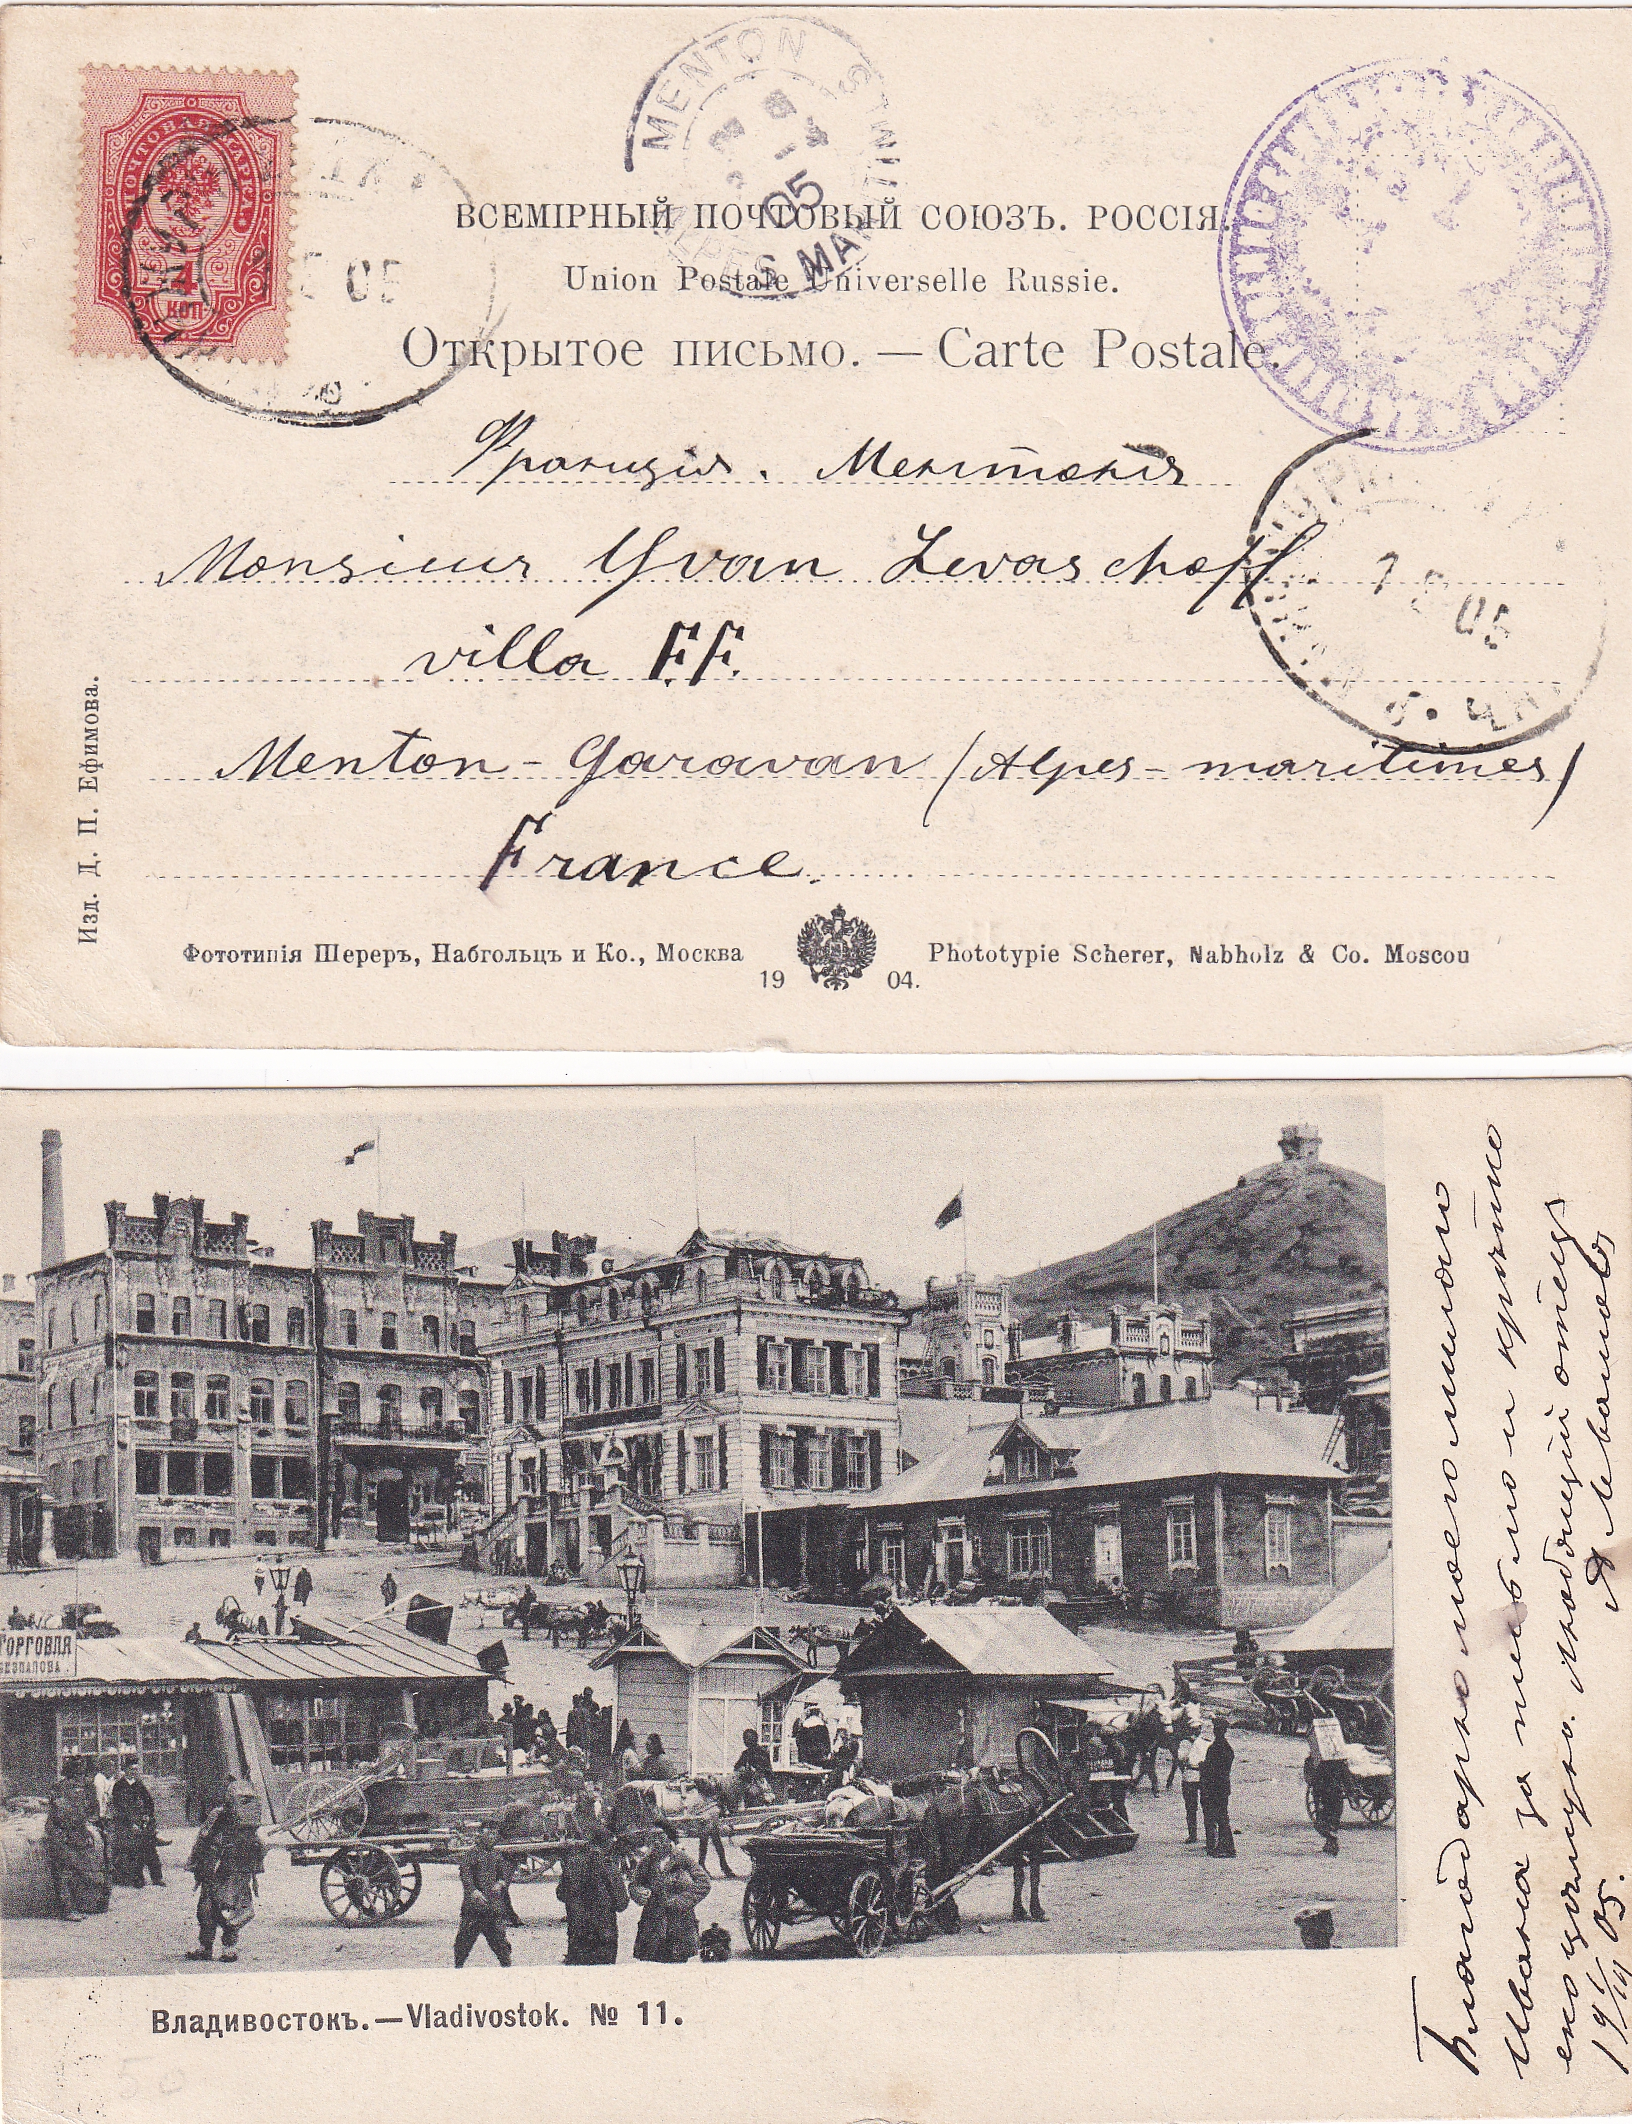 ПОЧТОВАЯ МАРКА
4
КОП
05
MENTON
05
ALPES MAR
ВСЕМІРНЫЙ ПОЧТОВЫЙ СОЮЗЪ. РОССІЯ.
Union Postale Universelle Russie.
Открытое письмо. — Carte Postale.
Франція. Ментонъ
Monsieur Yvan Levaschoff
villa F.F.
Menton - Garavan (Alpes-maritimes)
France.
7 5 05
Изд. Д. П. Ефимова.
Фототипія Шереръ, Набгольцъ и Ко., Москва
Phototypie Scherer, Nabholz & Co. Moscou
19 04.
ТОРГОВЛЯ
Владивостокъ.—Vladivostok. № 11.
Благодарю моего милого
Ивана за письмо и крѣпко
его цѣлую. Любящій отецъ
Левашовъ
05.